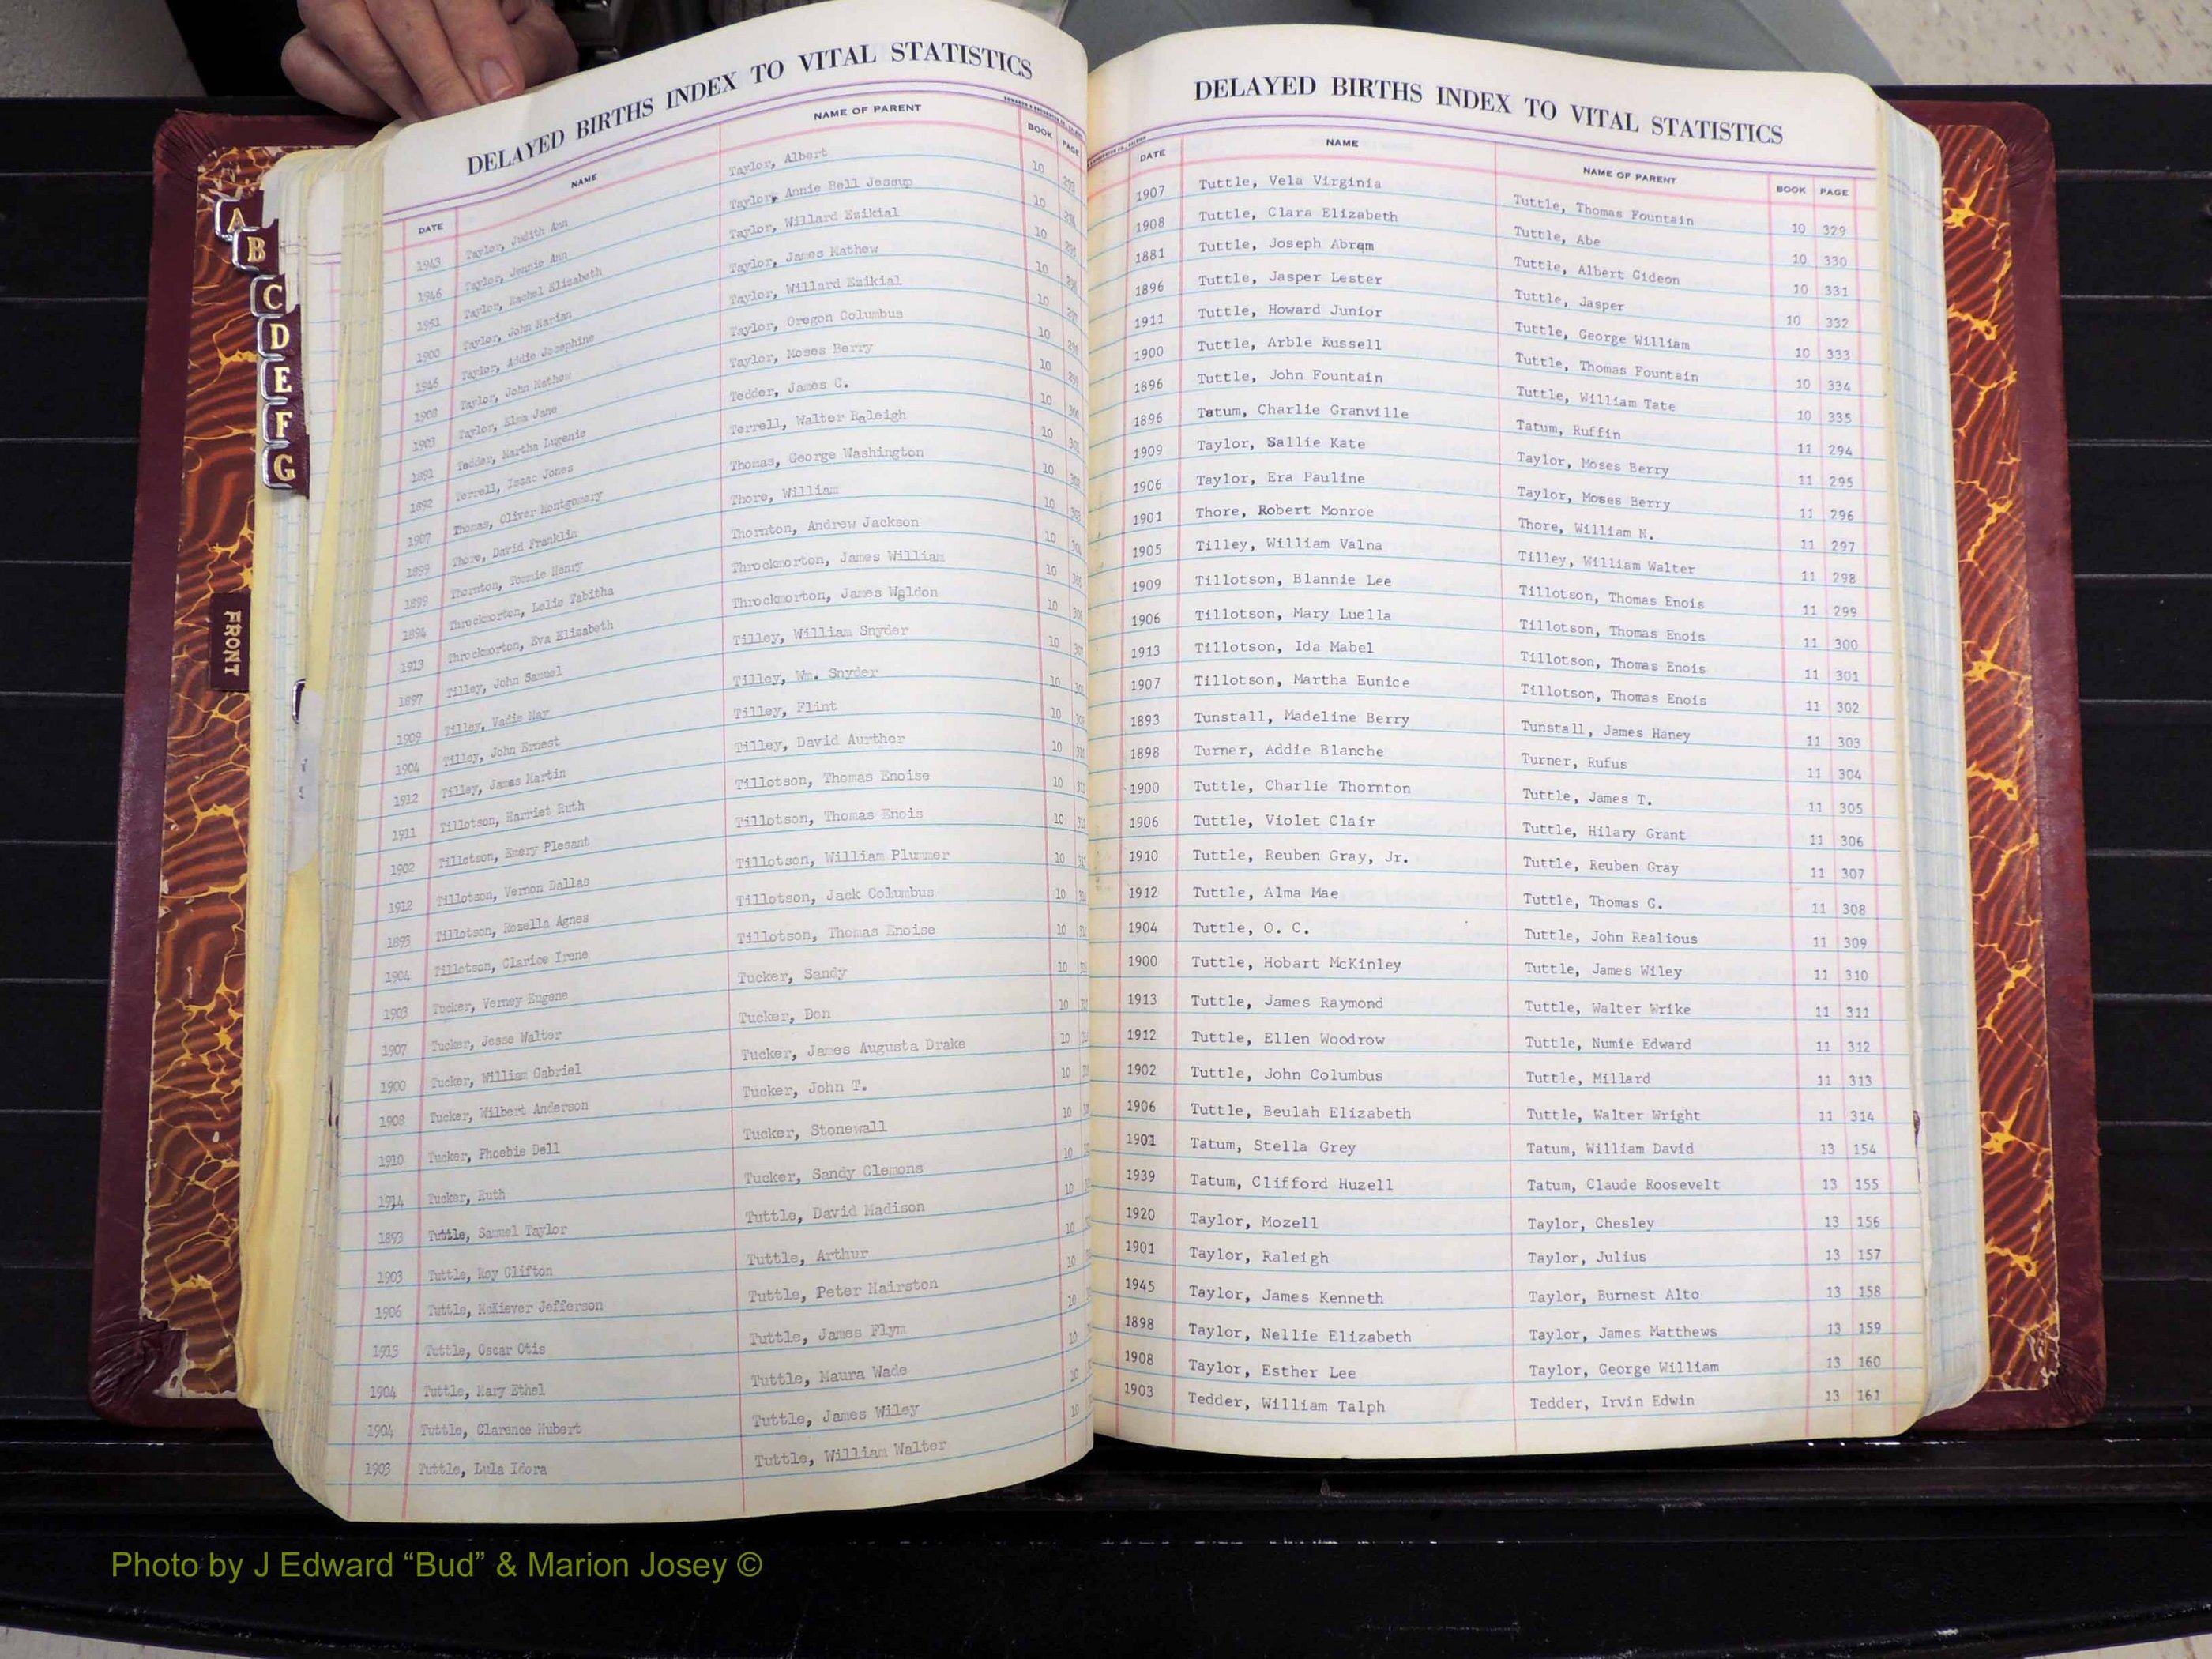 DELAYED BIRTHS INDEX TO VITAL STATISTICS
DATE NAME NAME OF PARENT BOOK PAGE
1943 Taylor, Judith Ann Taylor, Albert 10
1946 Taylor, Jennie Ann Taylor, Annie Bell Jessup 10
1951 Taylor, Rachel Elizabeth Taylor, Willard Ezikial 10
1900 Taylor, John Marian Taylor, James Mathew 10
1946 Taylor, Addie Josephine Taylor, Willard Ezikial 10
1908 Taylor, John Mathew Taylor, Oregon Columbus 10
1903 Taylor, Elma Jane Taylor, Moses Berry 10
1891 Tedder, Martha Lugenie Tedder, James C. 10
1892 Terrell, Isaac Jones Terrell, Walter Raleigh 10
1907 Thomas, Oliver Montgomery Thomas, George Washington 10
1899 Thore, David Franklin Thore, William 10
1899 Thornton, Tommie Henry Thornton, Andrew Jackson 10
1894 Throckmorton, Lelie Tabitha Throckmorton, James William 10
1913 Throckmorton, Eva Elizabeth Throckmorton, James Waldon 10
1897 Tilley, John Samuel Tilley, William Snyder 10
1909 Tilley, Vadie May Tilley, Wm. Snyder 10
1904 Tilley, John Ernest Tilley, Flint 10
1912 Tilley, James Martin Tilley, David Aurther 10
1911 Tillotson, Harriet Ruth Tillotson, Thomas Enoise 10
1902 Tillotson, Emery Plesant Tillotson, Thomas Enois 10
1912 Tillotson, Vernon Dallas Tillotson, William Plummer 10
1893 Tillotson, Rozella Agnes Tillotson, Jack Columbus 10
1904 Tillotson, Clarice Irene Tillotson, Thomas Enoise 10
1903 Tucker, Verney Eugene Tucker, Sandy 10
1907 Tucker, Jesse Walter Tucker, Don 10
1900 Tucker, William Gabriel Tucker, James Augusta Drake 10
1908 Tucker, Wilbert Anderson Tucker, John T. 10
1910 Tucker, Phoebie Dell Tucker, Stonewall 10
1914 Tucker, Ruth Tucker, Sandy Clemons 10
1893 Tuttle, Samuel Taylor Tuttle, David Madison 10
1903 Tuttle, Roy Clifton Tuttle, Arthur 10
1906 Tuttle, McKiever Jefferson Tuttle, Peter Hairston 10
1913 Tuttle, Oscar Otis Tuttle, James Flym 10
1904 Tuttle, Mary Ethel Tuttle, Maura Wade 10
1904 Tuttle, Clarence Hubert Tuttle, James Wiley 10
1903 Tuttle, Lula Idora Tuttle, William Walter 10
DELAYED BIRTHS INDEX TO VITAL STATISTICS
DATE NAME NAME OF PARENT BOOK PAGE
1907 Tuttle, Vela Virginia Tuttle, Thomas Fountain 10 329
1908 Tuttle, Clara Elizabeth Tuttle, Abe 10 330
1881 Tuttle, Joseph Abram Tuttle, Albert Gideon 10 331
1896 Tuttle, Jasper Lester Tuttle, Jasper 10 332
1911 Tuttle, Howard Junior Tuttle, George William 10 333
1900 Tuttle, Arble Russell Tuttle, Thomas Fountain 10 334
1896 Tuttle, John Fountain Tuttle, William Tate 10 335
1896 Tatum, Charlie Granville Tatum, Ruffin 11 294
1909 Taylor, Sallie Kate Taylor, Moses Berry 11 295
1906 Taylor, Era Pauline Taylor, Moses Berry 11 296
1901 Thore, Robert Monroe Thore, William N. 11 297
1905 Tilley, William Valna Tilley, William Walter 11 298
1909 Tillotson, Blannie Lee Tillotson, Thomas Enois 11 299
1906 Tillotson, Mary Luella Tillotson, Thomas Enois 11 300
1913 Tillotson, Ida Mabel Tillotson, Thomas Enois 11 301
1907 Tillotson, Martha Eunice Tillotson, Thomas Enois 11 302
1893 Tunstall, Madeline Berry Tunstall, James Haney 11 303
1898 Turner, Addie Blanche Turner, Rufus 11 304
1900 Tuttle, Charlie Thornton Tuttle, James T. 11 305
1906 Tuttle, Violet Clair Tuttle, Hilary Grant 11 306
1910 Tuttle, Reuben Gray, Jr. Tuttle, Reuben Gray 11 307
1912 Tuttle, Alma Mae Tuttle, Thomas G. 11 308
1904 Tuttle, O. C. Tuttle, John Realious 11 309
1900 Tuttle, Hobart McKinley Tuttle, James Wiley 11 310
1913 Tuttle, James Raymond Tuttle, Walter Wrike 11 311
1912 Tuttle, Ellen Woodrow Tuttle, Numie Edward 11 312
1902 Tuttle, John Columbus Tuttle, Millard 11 313
1906 Tuttle, Beulah Elizabeth Tuttle, Walter Wright 11 314
1901 Tatum, Stella Grey Tatum, William David 13 154
1939 Tatum, Clifford Huzell Tatum, Claude Roosevelt 13 155
1920 Taylor, Mozell Taylor, Chesley 13 156
1901 Taylor, Raleigh Taylor, Julius 13 157
1945 Taylor, James Kenneth Taylor, Burnest Alto 13 158
1898 Taylor, Nellie Elizabeth Taylor, James Matthews 13 159
1908 Taylor, Esther Lee Taylor, George William 13 160
1903 Tedder, William Talph Tedder, Irvin Edwin 13 161
A
B
C
D
E
F
G
FRONT
Photo by J Edward “Bud” & Marion Josey ©